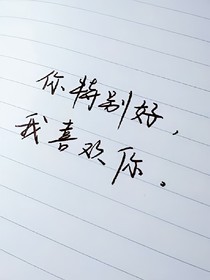 你特别好，
我喜欢你。